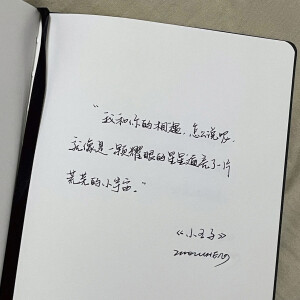 “我和你的相遇,怎么说呢,
就像是一颗耀眼的星星道亮了一片
荒芜的小宇宙。”
《小王子》